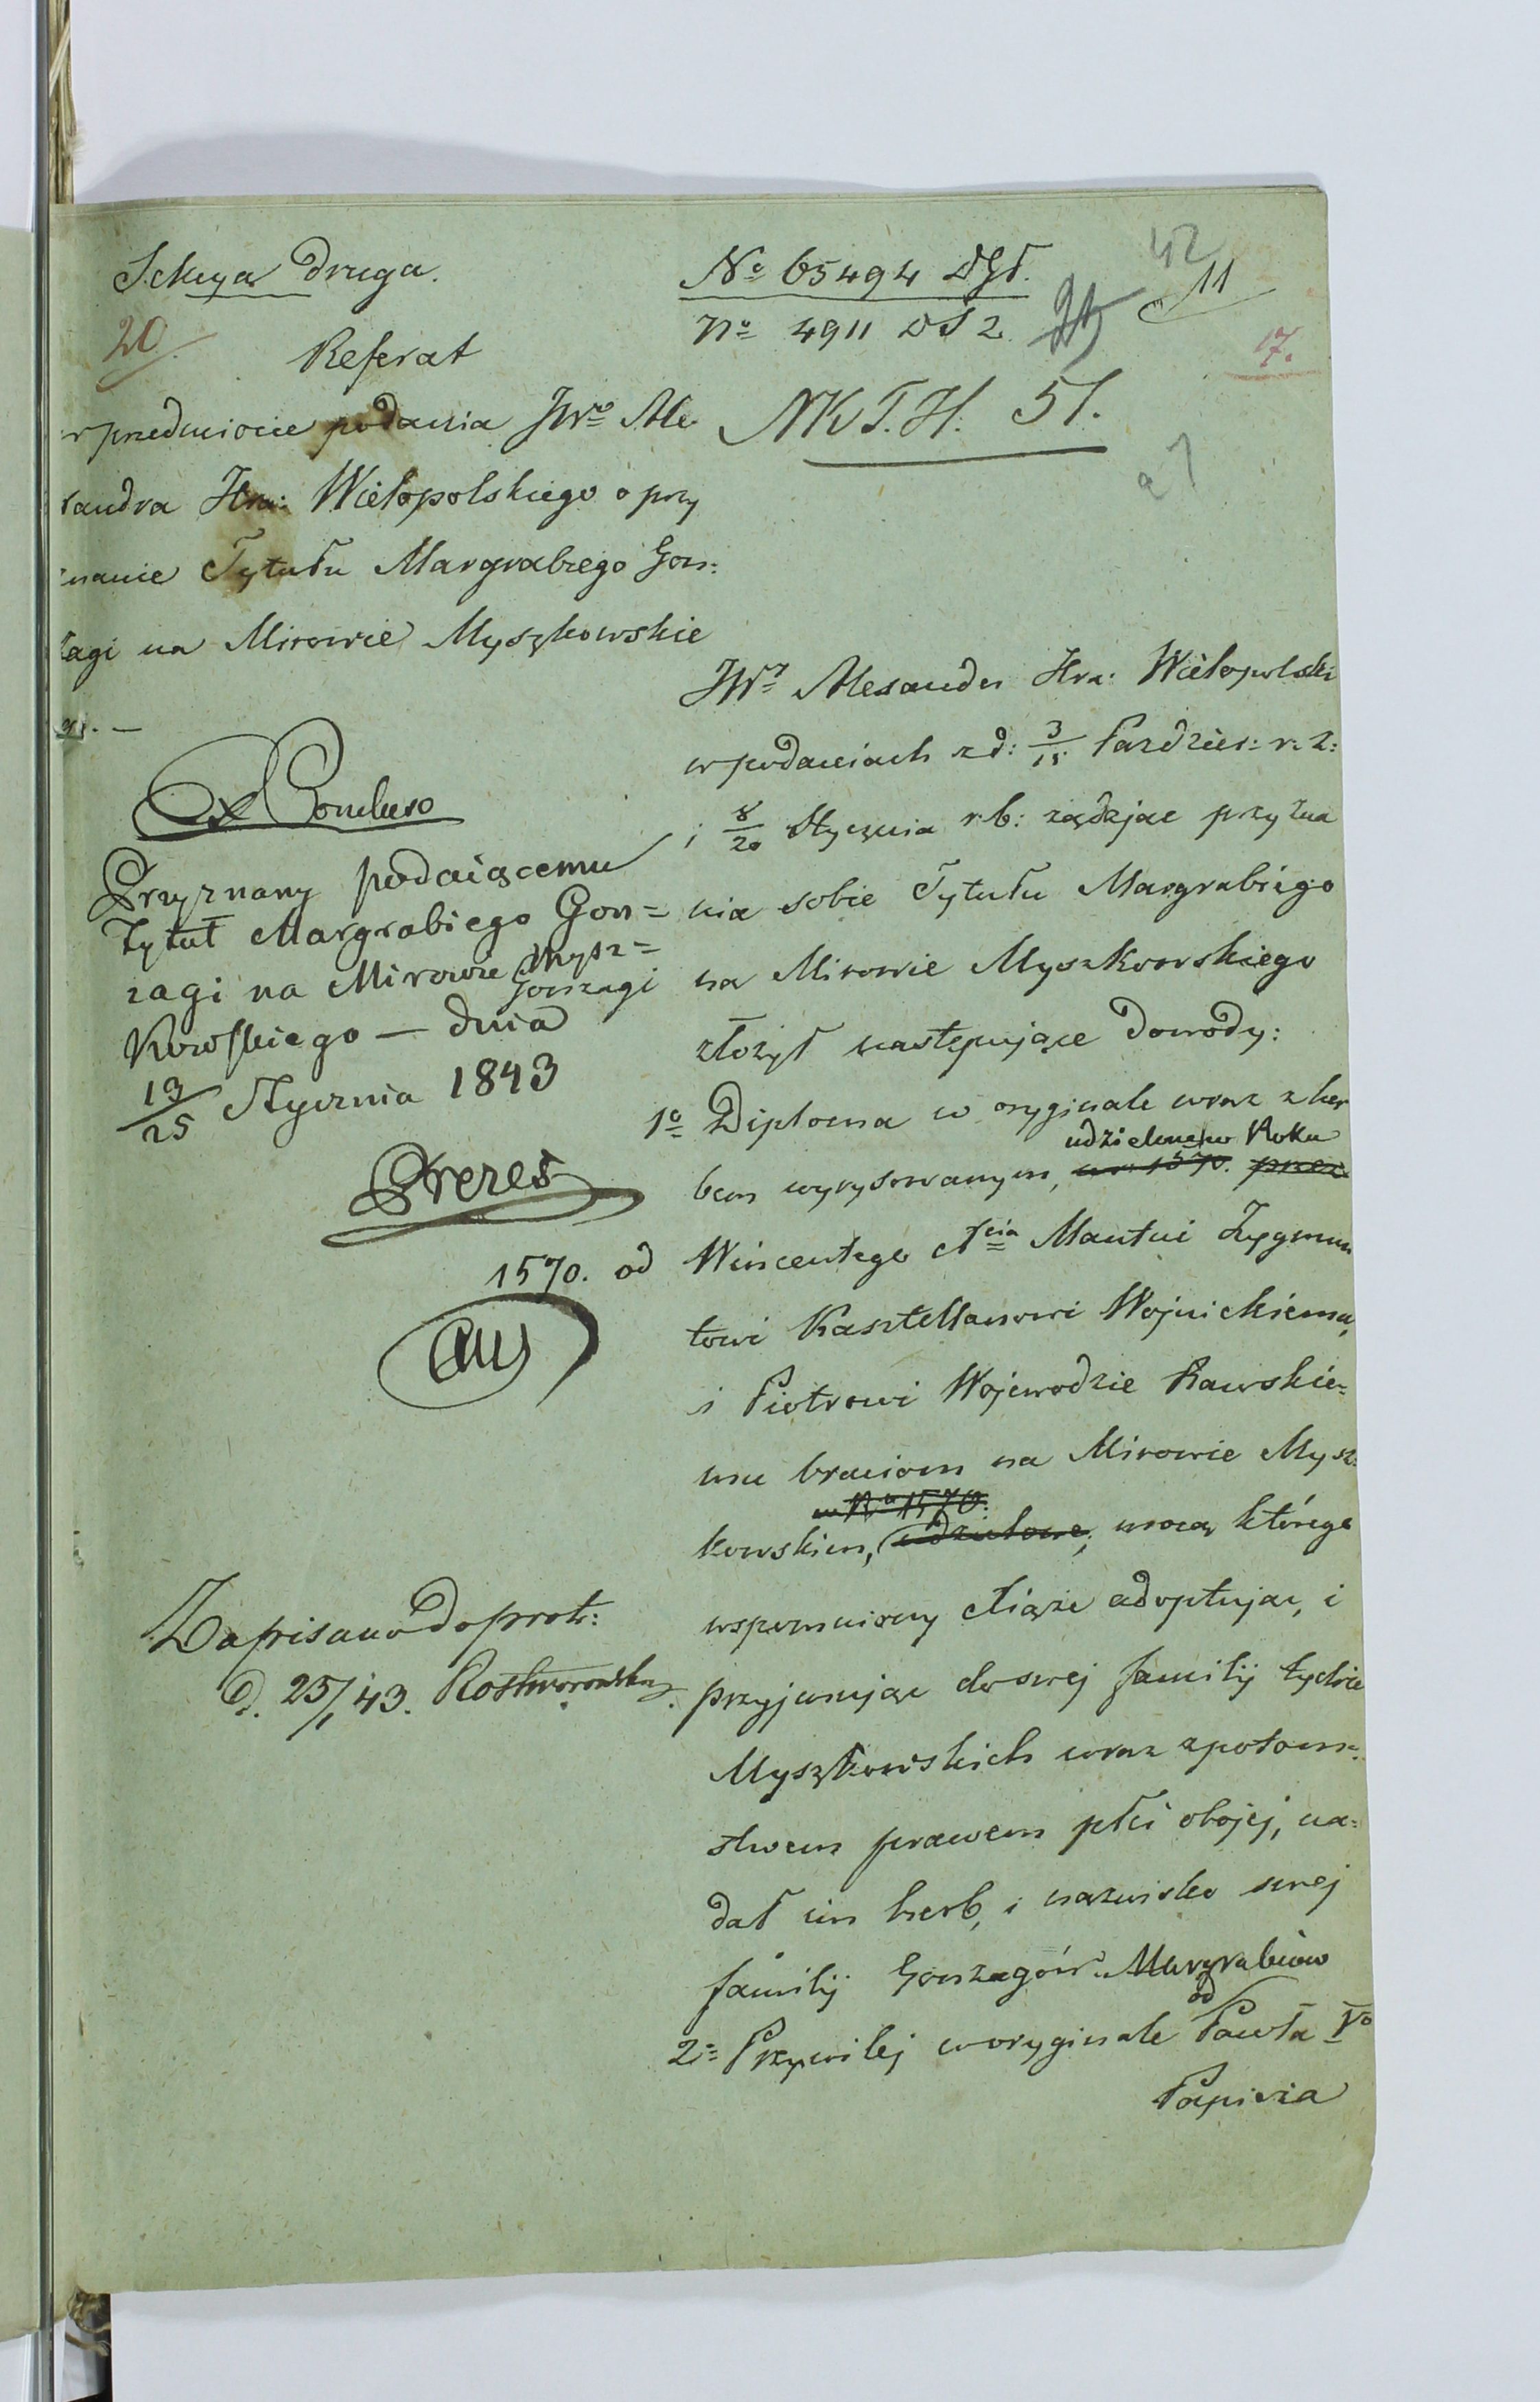 Sekcya Druga.
20
Referat
w przedmiocie podania JWo Ale
xandra Hra: Wielopolskiego o przy
znanie Tytułu Margrabiego Gon:
zagi na Mirowie Myszkowskie
go. —
Ex Concluso
Przyznany podaiącemu
Tytuł Margrabiego Gon=
zagi na Mirowie Mysz=
Gonzagi
kowskiego — dnia
13/25 Stycznia 1843
Prezes
Zapisano do prot:
d. 25/1 43. Rostworowski
No 65494 DGł.
No 4911 DS 2.
42
11
17.
NK T.H. 51.
JWy Alexander Hra: Wielopolski
w podaniach z d: 3/15 Paździer: r. z:
i 8/20 Stycznia r. b: żądając przyzna
nia sobie Tytułu Margrabiego
na Mirowie Myszkowskiego
złożył następujące Dowody:
1o Diploma w oryginale wraz z her
udzielone w Roku
bem wyrysowanym, w r. 1570. przez
1570. od Wincentego Xcia Mantui Zygmun
towi Kasztellanowi Wojnickiemu,
i Piotrowi Wojewodzie Rawskie=
mu braciom na Mirowie Mysz=
w Ru 1570.
kowskim, udzielone, mocą którego
wspomniony Xiąże adoptując, i
przyjmując do swej familij tychże
Myszkowskich wraz z potom=
stwem prawem płci obojej, na=
dał im herb, i nazwisko swej
familij Gonzagów Margrabiów
od
2o Przywilej w oryginale Pawła Vo
Papieża